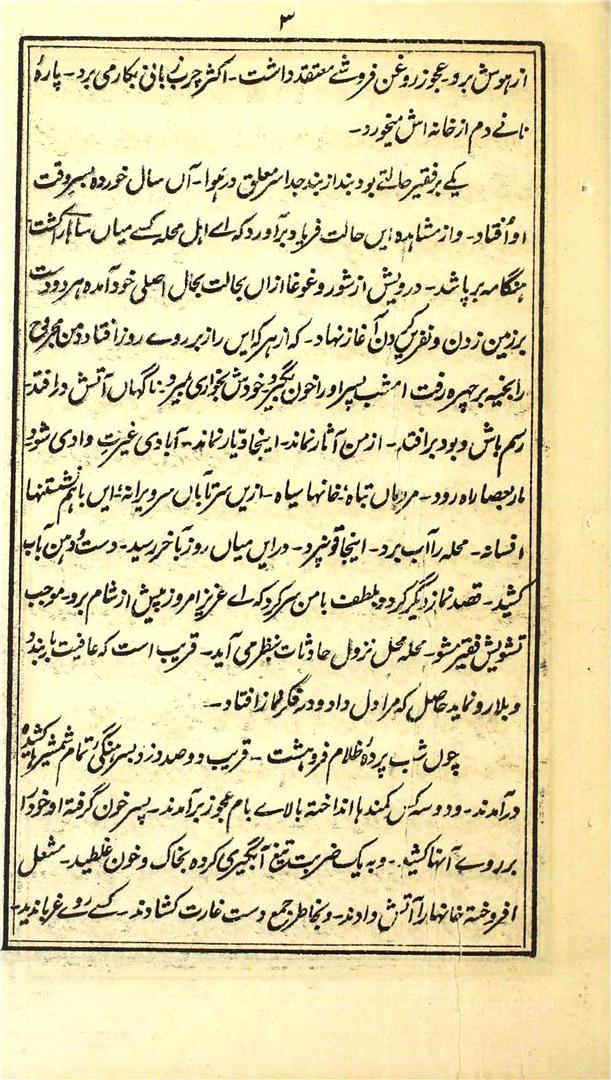 ۳
از ہوش برو۔ عجوز روغن فروشے معتقد داشت۔ اکثر چرب زبانی بکار می برد۔ پارۂ
نانے دم از خانہ اش میخورد۔
یکے بر فقیر حالتے بود بند از بند جدا سر معلق در ہوا۔ آں سال خوردہ بسر وقت
او افتاد۔ و از مشاہدہ ایں حالت فریاد برآورد کہ اے اہل محلہ کسے میاں را کشت
ہنگامہ برپا شد۔ درویش از شور و غوغا ازاں بحالت بحال اصلی خود آمدہ ہر دو دست
بر زمین زدن و نفریں کردن آغاز نہاد۔ کہ از ہر کہ ایں راز بر روے روز افتاد و من مجروحی
را بخیہ بر چہرہ رفت امشب پسر او را خون بگیرد و خودش بخواری میرد۔ ناگہاں آتش در افتد
رسم باش و بود برافتد۔ از من آثار نماند۔ اینجا دیار نماند۔ آبادی غیرت وادی شود
مار بعصا راہ رود۔ مردماں تباہ؛ خانہا سیاہ۔ ازیں سر تا بآں سر ویرانہ؛ ایں باہم نشستنہا
افسانہ۔ محلہ را آب برد۔ اینجا قو نپرد۔ در ایں میاں روز بآخر رسید۔ دست و دہن بآب
کشید۔ قصد نماز دیگر کرد و بلطف با من سر کرد کہ اے عزیز امروز پیش از شام برو۔ موجب
تشویش فقیر مشو۔ محلہ محل نزول حادثات بنظر می آید۔ قریب است کہ عافیت بار بندد
و بلا رو نماید حاصل کہ مرا دل داد و در فکر نماز افتاد۔
چوں شب پردۂ ظلام فروہشت۔ قریب دو صد دزد بسرہنگی تمام شمشیرہا کشیدہ
درآمدند۔ و دو سہ کس کمند ہا انداختہ بالاے بام عجوز برآمدند۔ پسر خون گرفتۂ او خود را
بر روے آنہا کشید۔ و بہ یک ضربت تیغ آبگیری کردہ بخاک و خون غلطید۔ مشعل
افروختہ خانہا را آتش دادند۔ و بخاطر جمع دست غارت کشادند۔ کسے روے غرباندید۔